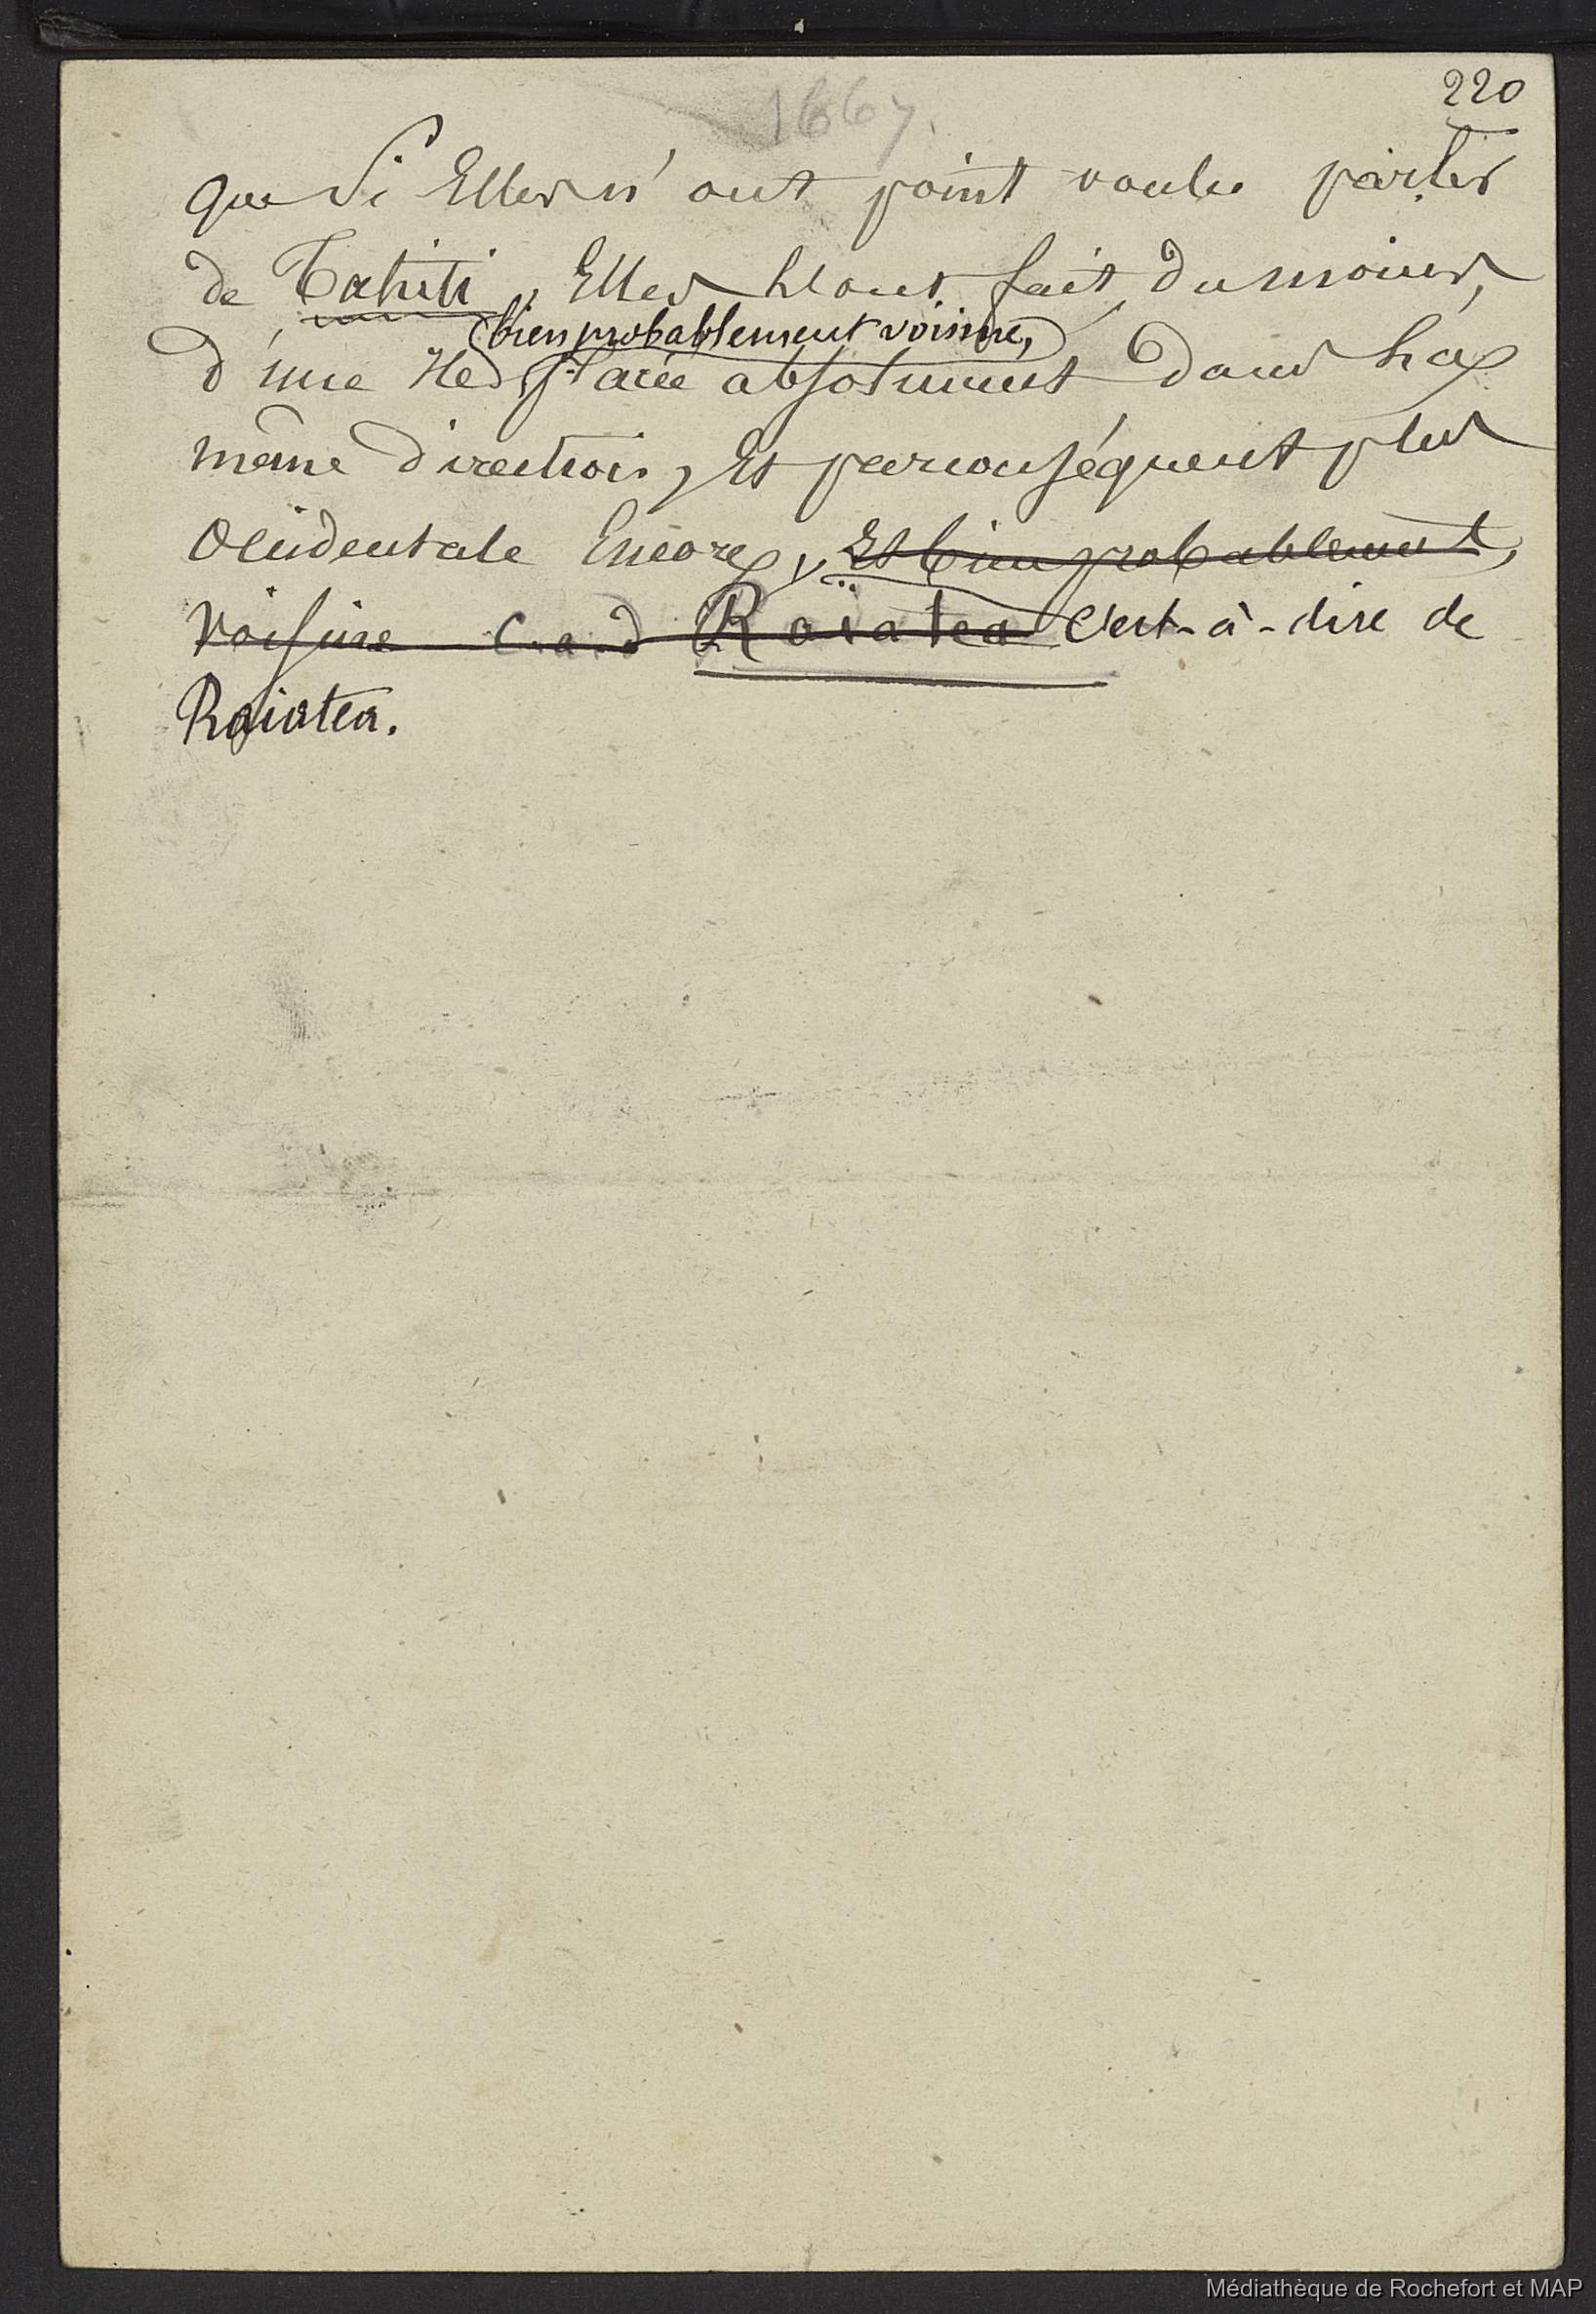 220
1667.
que Si Elles n'ont point voulu parler
de Tahiti, Elles l'ont fait, du moins,
bien probablement voisine,
d'une Ile placée absolument dans la
même direction, Et par conséquent plus
Occidentale Encore, Et bien probablement,
voisine c.a.d Raïatea C'est-à-dire de
Raiatea.
Médiathèque de Rochefort et MAP